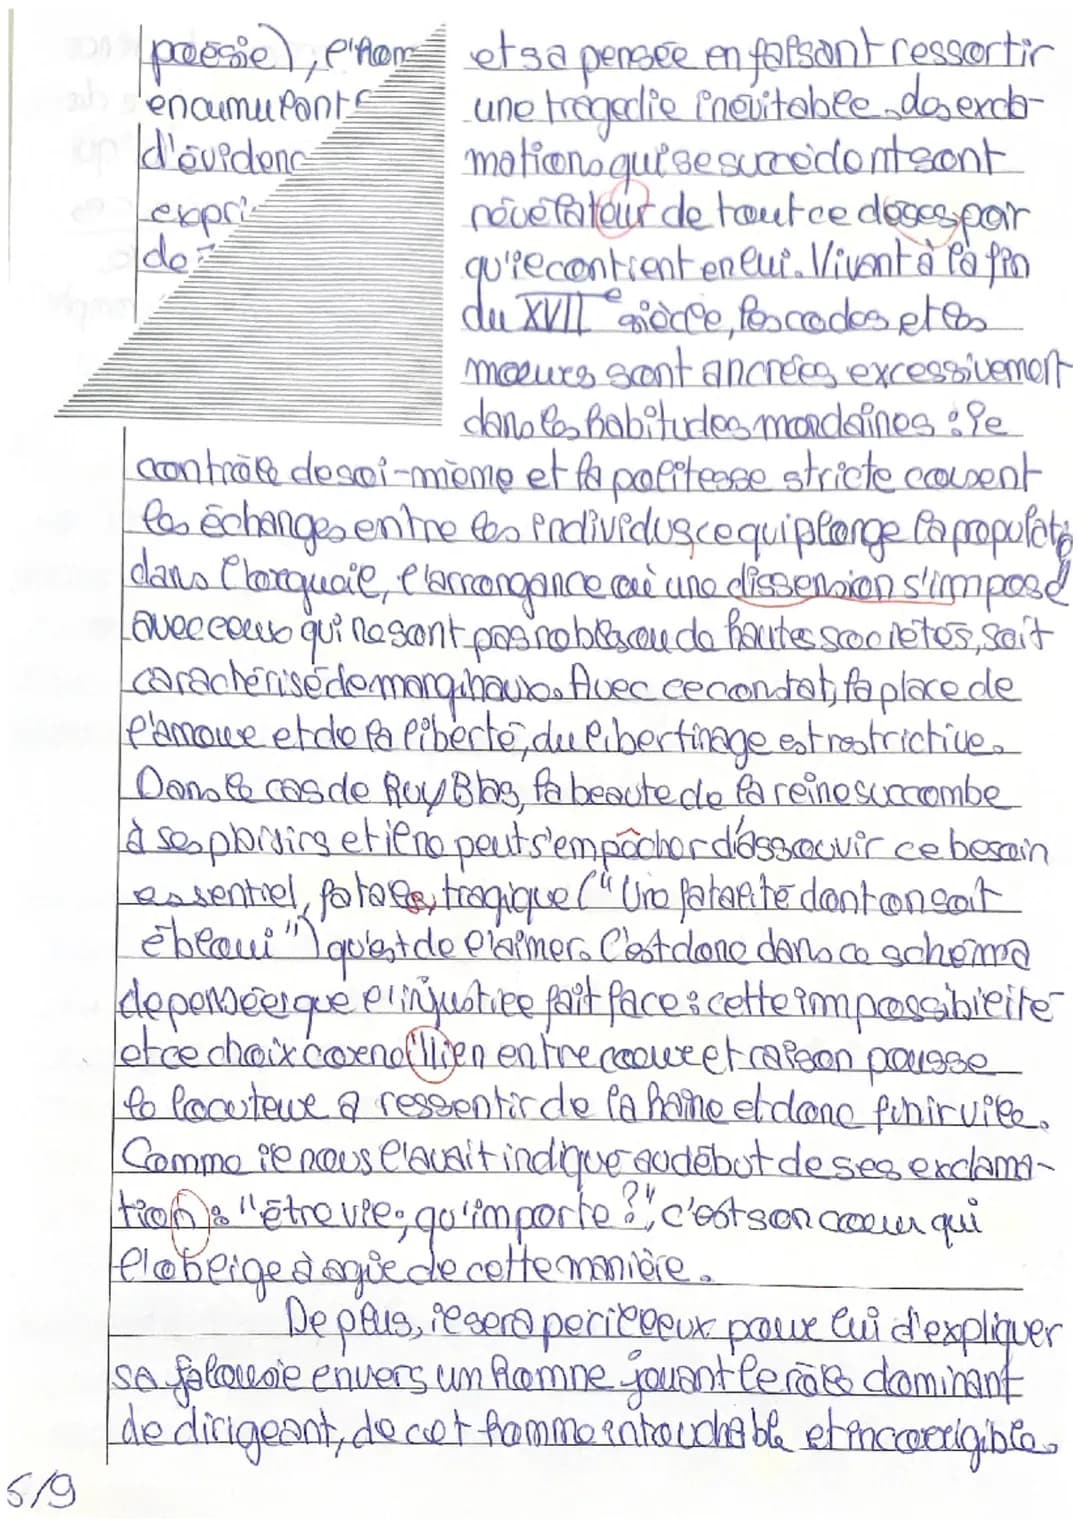 poésie), l'hom
encumulant
d'évidenc
expri
de
et sa pensée en faisant ressortir
une tragédie inévitable, des excla-
mations qui se succèdent sont
révélateur de tout ce désespoir
qu'il contient en lui. Vivant à la fin
du XVII e siècle, les codes et les
mœurs sont ancrées excessivement
dans les habitudes mondaines : le
contrôle de soi-même et la politesse stricte
les échanges entre les individus, ce qui plonge la populati
dans l'orgueil, l'arrongance où une dissension s'impose
avec ceux qui ne sont pas nobles ou de hautes sociétés, soit
caractérisé de marginaux. Avec ce constat, la place de
l'amour et de la liberté, du libertinage est restrictive.
Dans le cas de Ruy Blas, la beauté de la reine succombe
à ses plaisirs et il ne peut s'empêcher d'assouvir ce besoin
essentiel, fatale, tragique ("Une fatalité dont on soit
ébloui") qu'est de l'aimer. C'est donc dans ce schéma
de pensée que l'injustice fait face : cette impossibilité
et ce choix cornélilien entre coeur et raison pousse
le locuteur a ressentir de la haine et donc finir vile.
Comme il nous l'avait indiqué au début de ses exclama-
tion : "être vil, qu'importe ?", c'est son coeur qui
l'obeige à agir de cette manière.
De plus, il sera perilleux pour lui d'expliquer
sa jalousie envers un homme jouant le rôle dominant
de dirigeant, de cet homme intouchable et incorrigible.
5/9